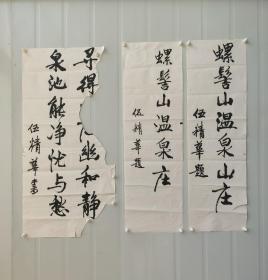 螺髻山温泉山庄
伍精华题
螺髻山温泉庄
伍精华题
寻得
幽和静
泉池能净忧与愁
伍精华书